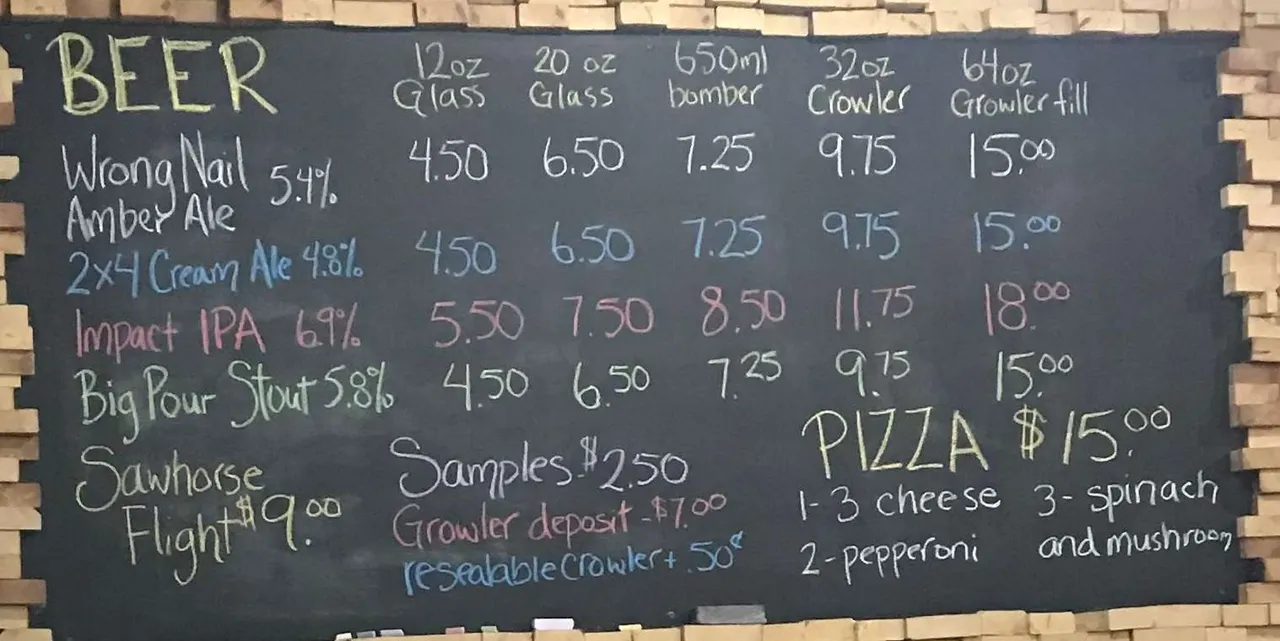 BEER 12oz Glass 20 oz Glass 650ml bomber 32oz Crowler 64oz Growler fill
Wrong Nail Amber Ale 5.4% 4.50 6.50 7.25 9.75 15.00
2x4 Cream Ale 4.8% 4.50 6.50 7.25 9.75 15.00
Impact IPA 6.9% 5.50 7.50 8.50 11.75 18.00
Big Pour Stout 5.8% 4.50 6.50 7.25 9.75 15.00
Sawhorse
Flight $9.00
Samples - $2.50
Growler deposit - $7.00
resealable Crowler + .50¢
PIZZA $15.00
1- 3 cheese
2- pepperoni
3- spinach
and mushroom